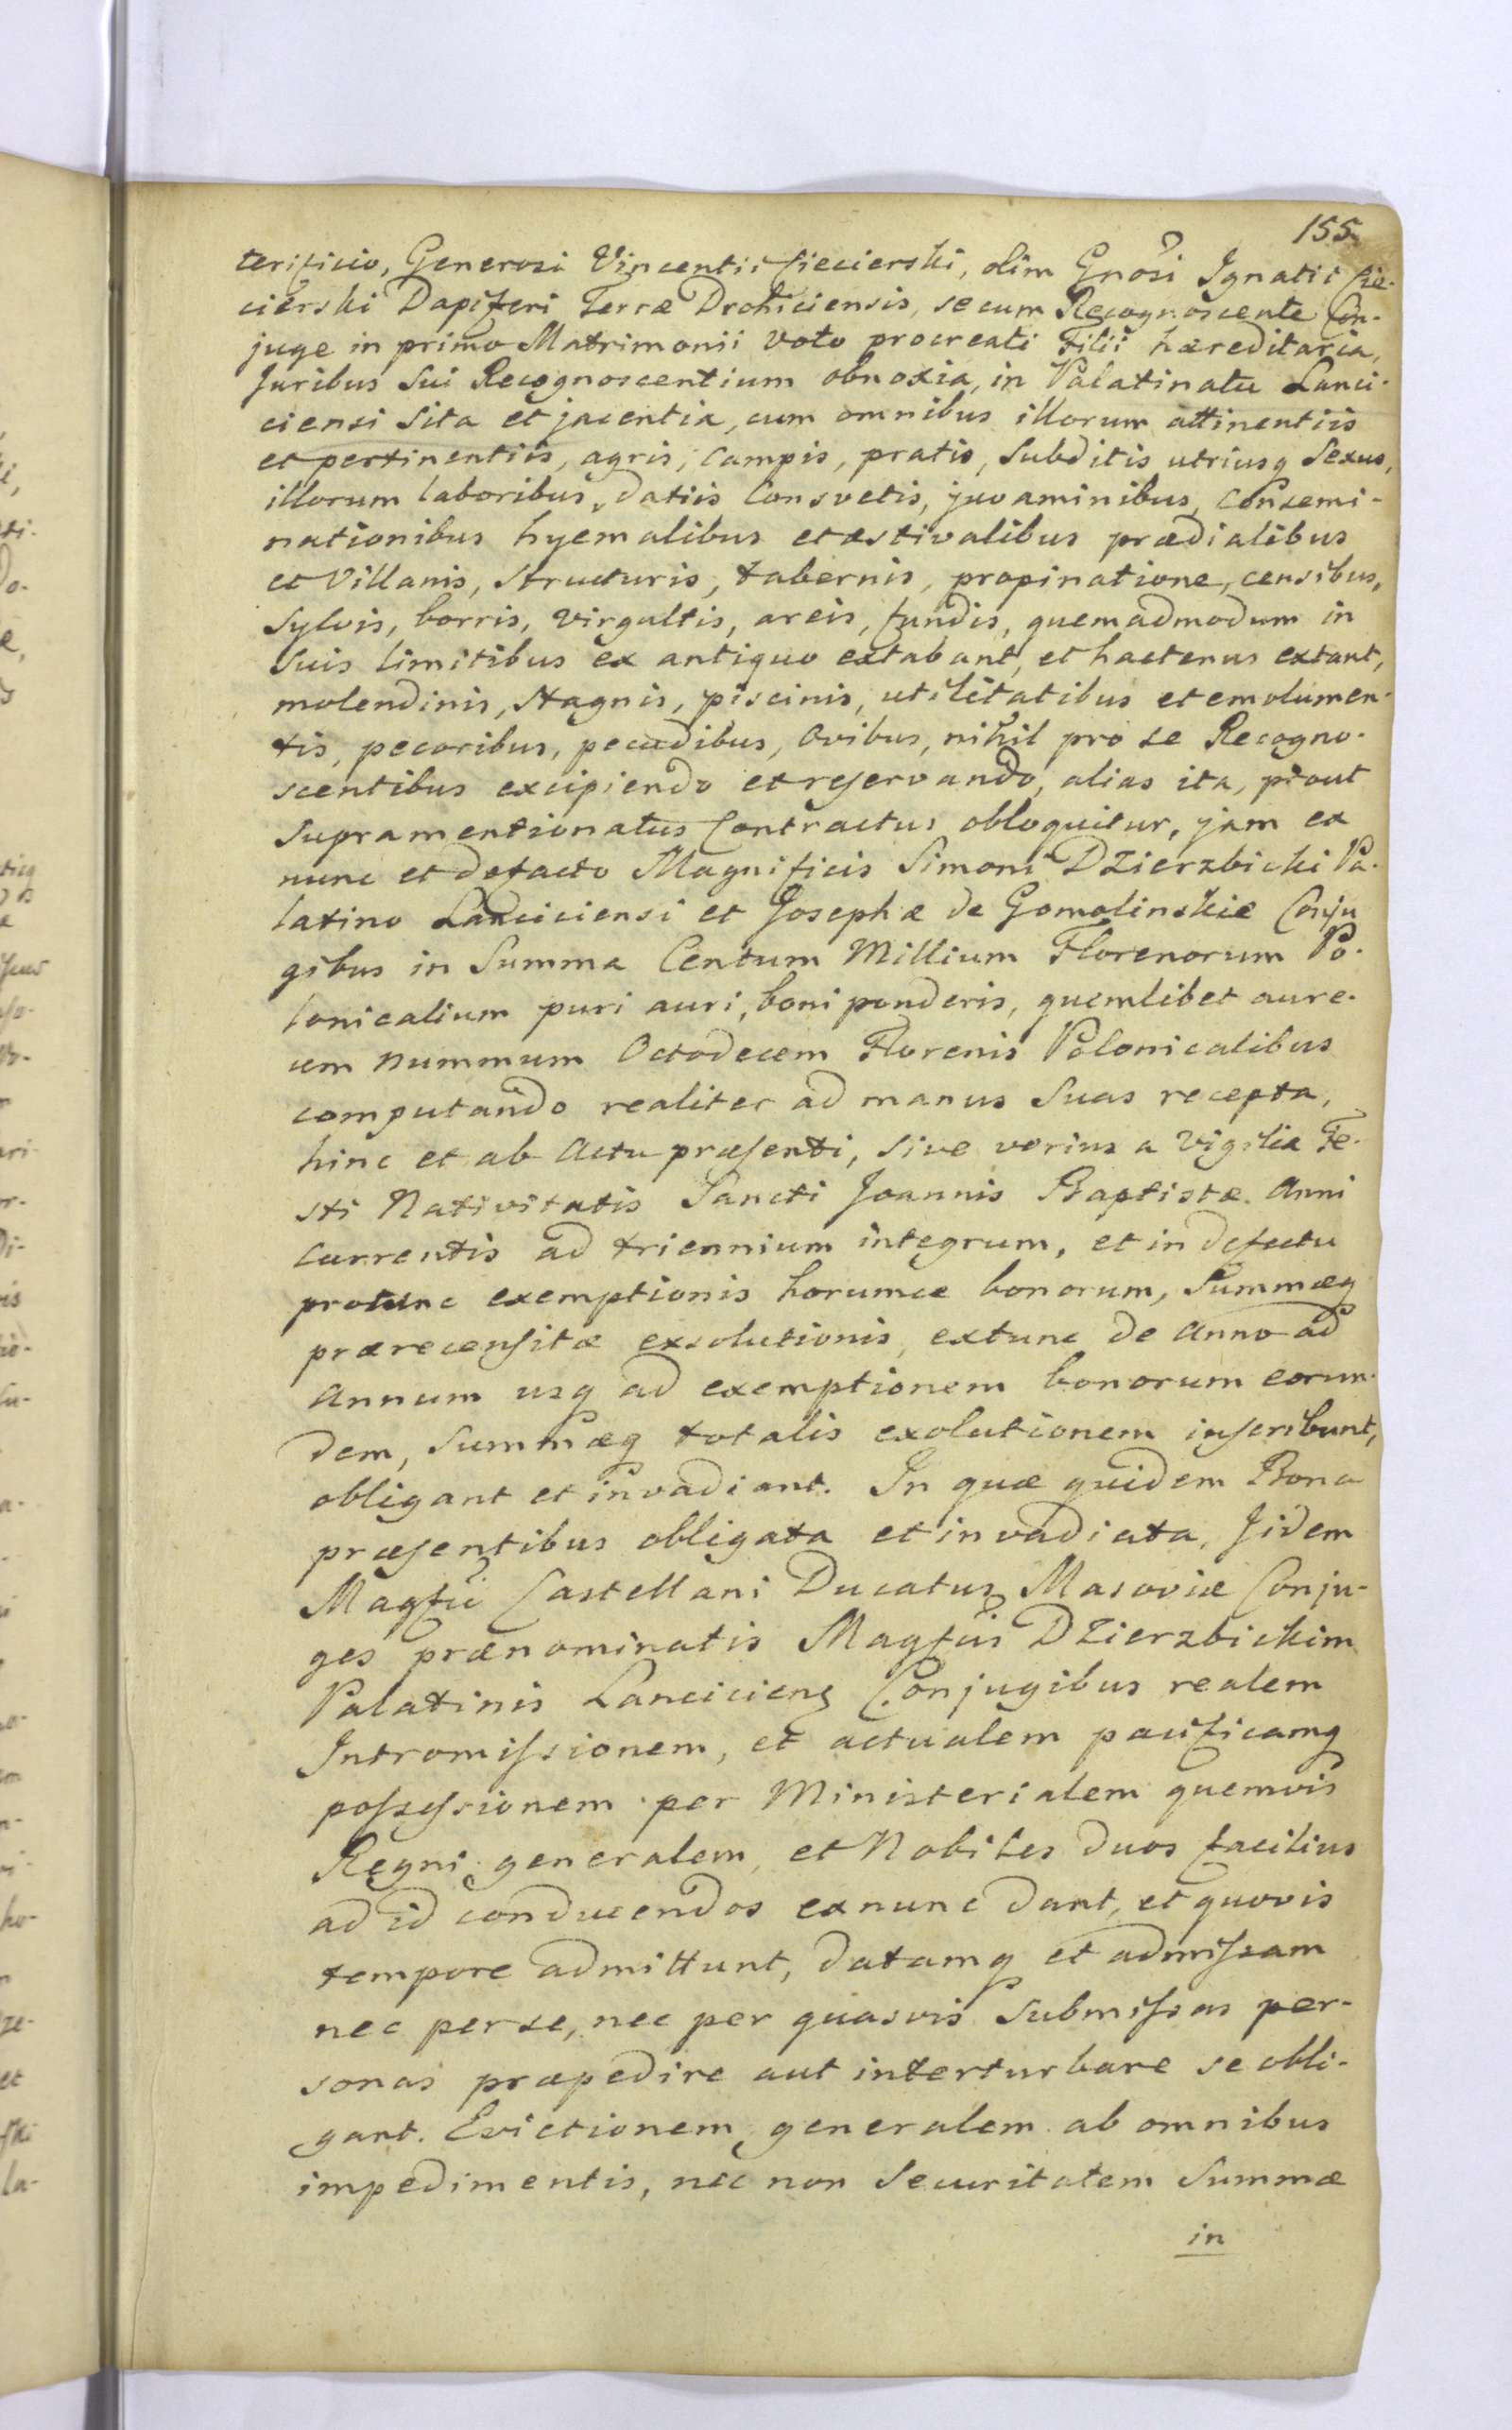 155
terificio, Generosi Vincentii Ciecierski, olim Gnosi Ignatii Cie-
cierski Dapiferi Terræ Drohiciensis, secum Recognoscente Con-
juge in primo Matrimonii Voto procreati Filii hæreditaria,
Juribus Sui Recognoscentium obnoxia, in Palatinatu Lanci-
ciensi Sita et jacentia, cum omnibus illorum attinentiis
et pertinentiis, agris, Campis, pratis, Subditis utriusq Sexus,
illorum laboribus, datiis Consvetis, juvaminibus, Consemi-
nationibus hyemalibus et æstivalibus prædialibus
et Villanis, Structuris, tabernis, propinatione, censibus,
Sylvis, borris, Virgultis, areis, fundis, quemadmodum in
Suis limitibus ex antiquo extabant, et hactenus extant,
molendinis, Stagnis, piscinis, utilitatibus et emolumen-
tis, pecoribus, pecudibus, Ovibus, nihil pro se Recogno-
scentibus excipiendo et reservando, alias ita, prout
Supramentionatus Contractus obloquitur, jam ex
nunc et defacto Magnificis Simoni Dzierzbicki Pa-
latino Lanciciensi et Josephæ de Gomolinskie Conju
gibus in Summa Centum Millium Florenorum Po-
lonicalium puri auri, boni ponderis, quemlibet aure-
um nummum Octodecem Florenis Polonicalibus
computando realiter ad manus Suas recepta,
hinc et ab Actu præsenti, Sive verius a Vigilia Fe-
sti Nativitatis Sancti Joannis Baptistæ Anni
Currentis ad triennium integrum, et in defectu
protunc exemptionis horumce bonorum, Summæq
prærecensitæ exsolutionis, extunc de Anno ad
Annum usq ad exemptionem bonorum eorun-
dem, Summæq totalis exolutionem inscribunt,
obligant et invadiant. In quæ quidem Bona
præsentibus obligata et invadiata, Iidem
Magfci Castellani Ducatus Masoviæ Conju-
ges prænominatis Magfcis Dzierzbickim
Palatinis Lanciciens Conjugibus realem
Intromissionem, et actualem pacificamq
possessionem per Ministerialem quemvis
Regni generalem, et Nobiles duos facilius
ad id conducendos exnunc dant, et quovis
tempore admittunt, datamq et admissam
nec per se, nec per quasvis Submissas per-
sonas præpedire aut interturbare se obli-
gant. Evictionem generalem ab omnibus
impedimentis, nec non Securitatem Summæ
in